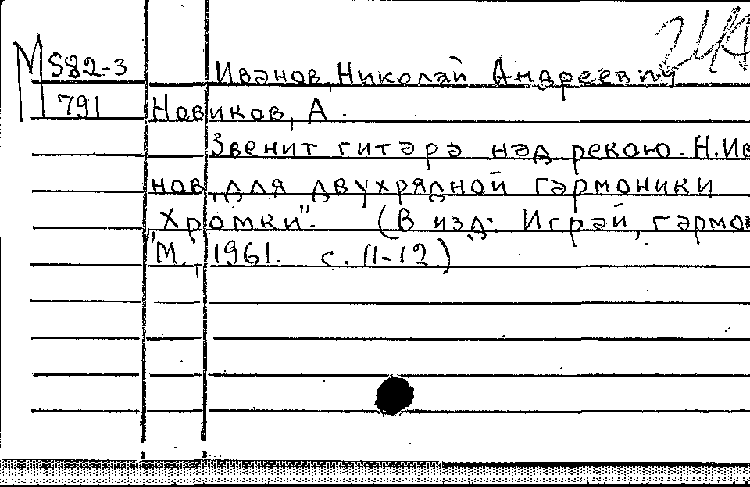 М S82-3 Иванов, Николай Андреевич
791 Новиков, А.
Звенит гитара над рекою. Н.Ив
нов, для двухрядной гармоники
"Хромки". (В изд: Играй, гармо
М., 1961. с. 11-12)